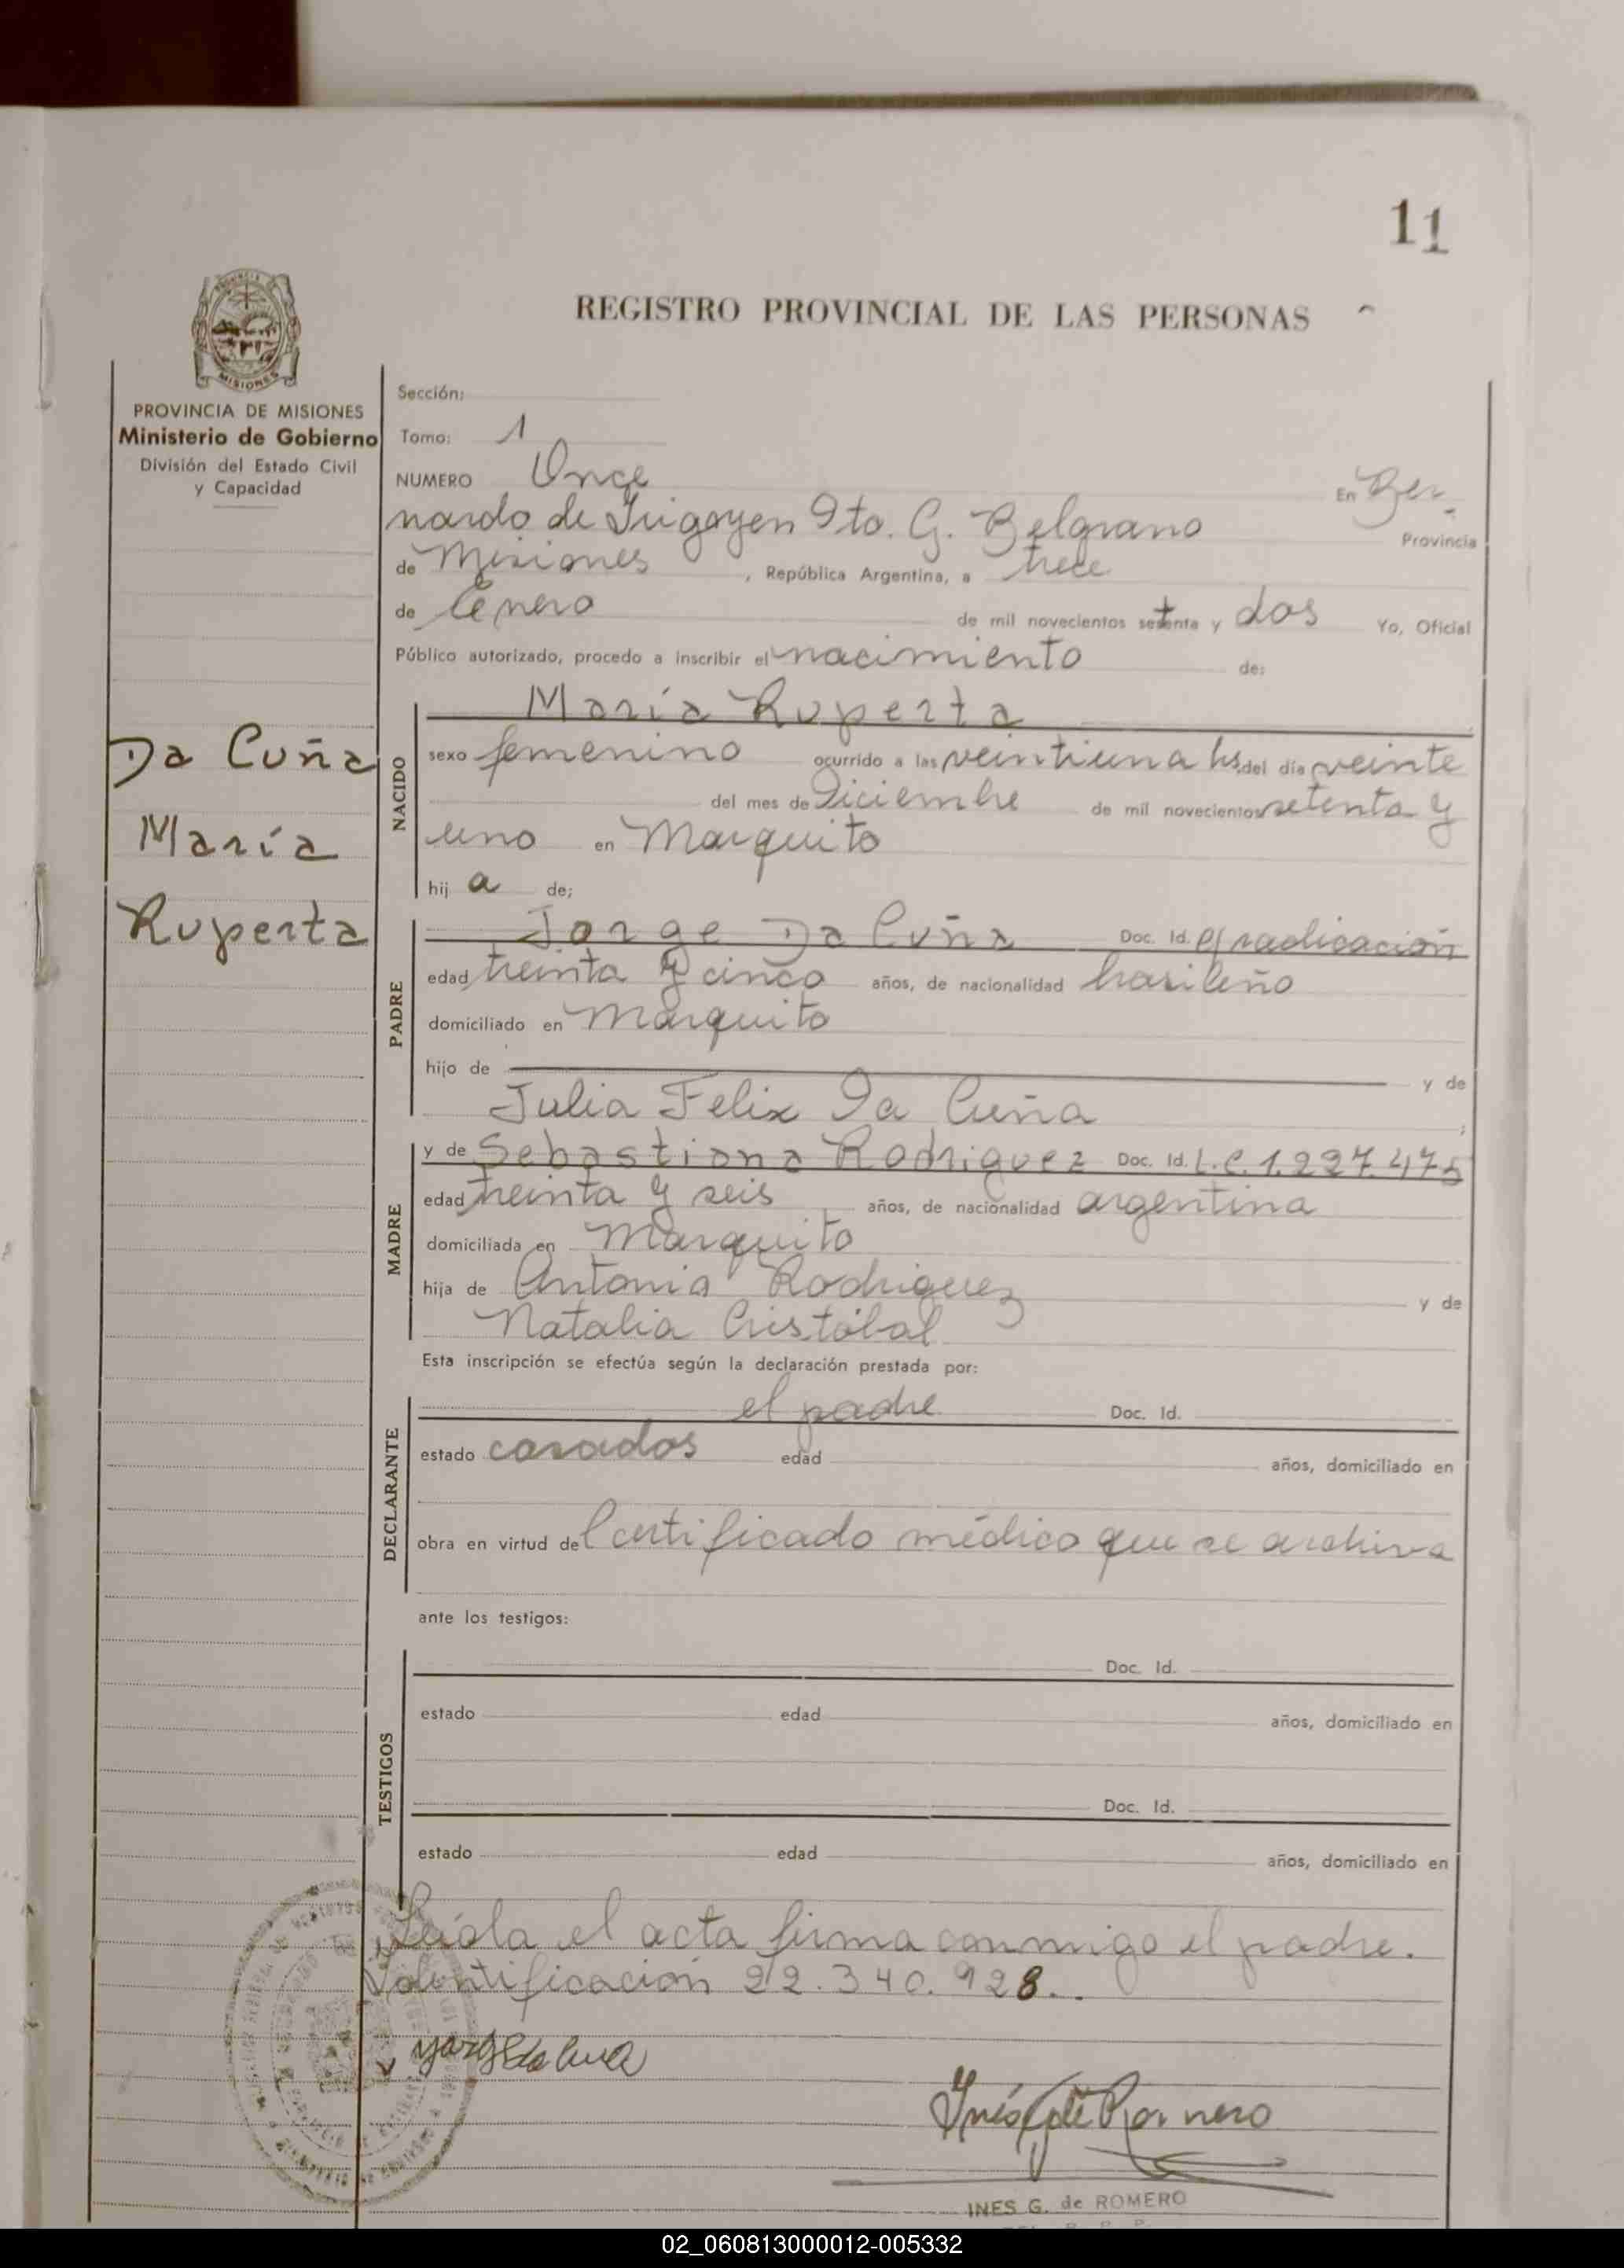 11
REGISTRO PROVINCIAL DE LAS PERSONAS
MISIONES
PROVINCIA DE MISIONES
Ministerio de Gobierno
División del Estado Civil
y Capacidad
Da Cuña
María
Ruperta
Sección:
Tomo: 1
NUMERO Once En Ber-
nardo de Irigoyen Dto. G. Belgrano Provincia
de Misiones, República Argentina, a trece
de Enero de mil novecientos setenta y dos Yo, Oficial
Público autorizado, procedo a inscribir el nacimiento de:
NACIDO
María Ruperta
sexo femenino ocurrido a las veintiuna hs. del día veinte
del mes de Diciembre de mil novecientos setenta y
uno en Marquito
hij a de;
PADRE
Jorge Da Cuña Doc. Id. c/radicación
edad treinta y cinco años, de nacionalidad brasileño
domiciliado en Marquito
hijo de y de
Julia Felix Da Cuña
MADRE
y de Sebastiana Rodriguez Doc. Id. L.C. 1.227.475
edad treinta y seis años, de nacionalidad argentina
domiciliada en Marquito
hija de Antonia Rodriguez y de
Natalia Cristóbal
Esta inscripción se efectúa según la declaración prestada por:
DECLARANTE
el padre Doc. Id.
estado casados edad años, domiciliado en
obra en virtud de Certificado médico que se archiva
ante los testigos:
TESTIGOS
Doc. Id.
estado edad años, domiciliado en
Doc. Id.
estado edad años, domiciliado en
Leída el acta firma conmigo el padre.
Identificación 22.340.928.
Inés G de Romero
INES G. de ROMERO
02_060813000012-005332